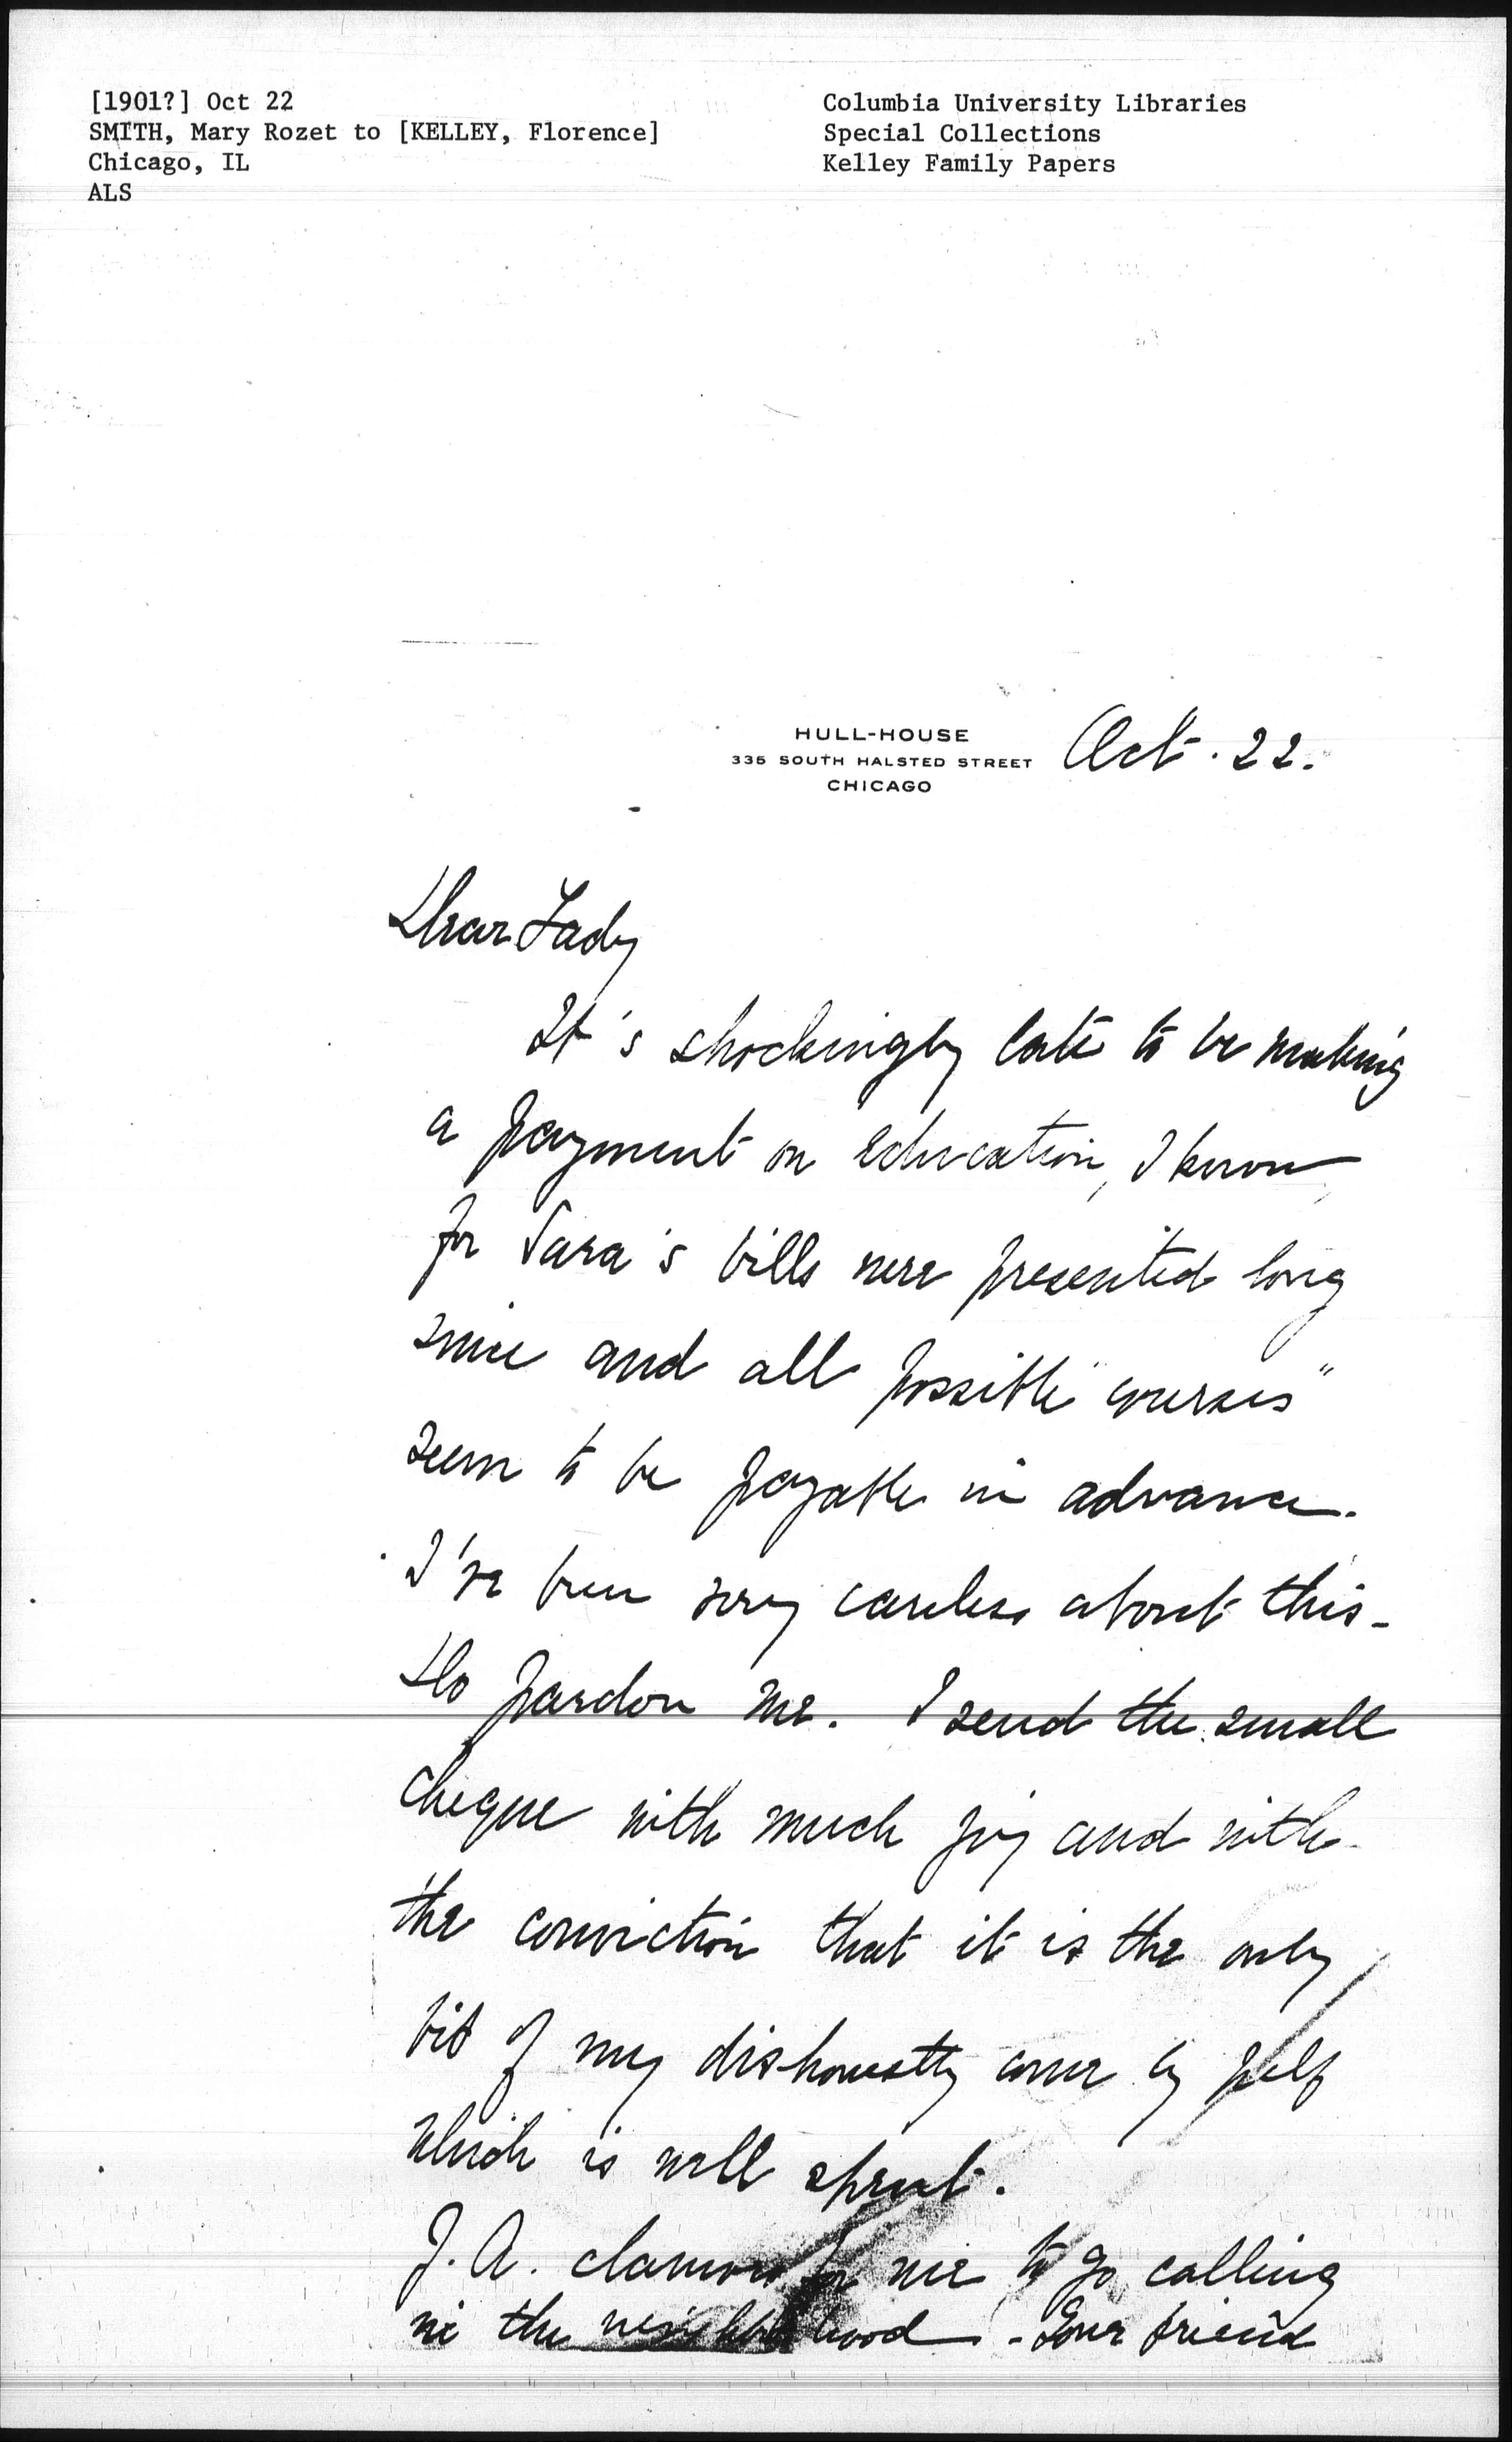 [1901?] Oct 22
SMITH, Mary Rozet to [KELLEY, Florence]
Chicago, IL
ALS
Columbia University Libraries
Special Collections
Kelley Family Papers
HULL-HOUSE
335 SOUTH HALSTED STREET
CHICAGO
Oct. 22.
Dear Lady
It's shockingly late to be making
a payment on education, I know,
for Sara's bills were presented long
since and all possible "courses"
seem to be payable in advance.
I've been very careless about this -
Do pardon me. I send the small
cheque with much joy and with
the conviction that it is the only
bit of my dishonestly come by pelf
which is well spent.
J. A. clamors for me to go calling
in the neighborhood - Your friend